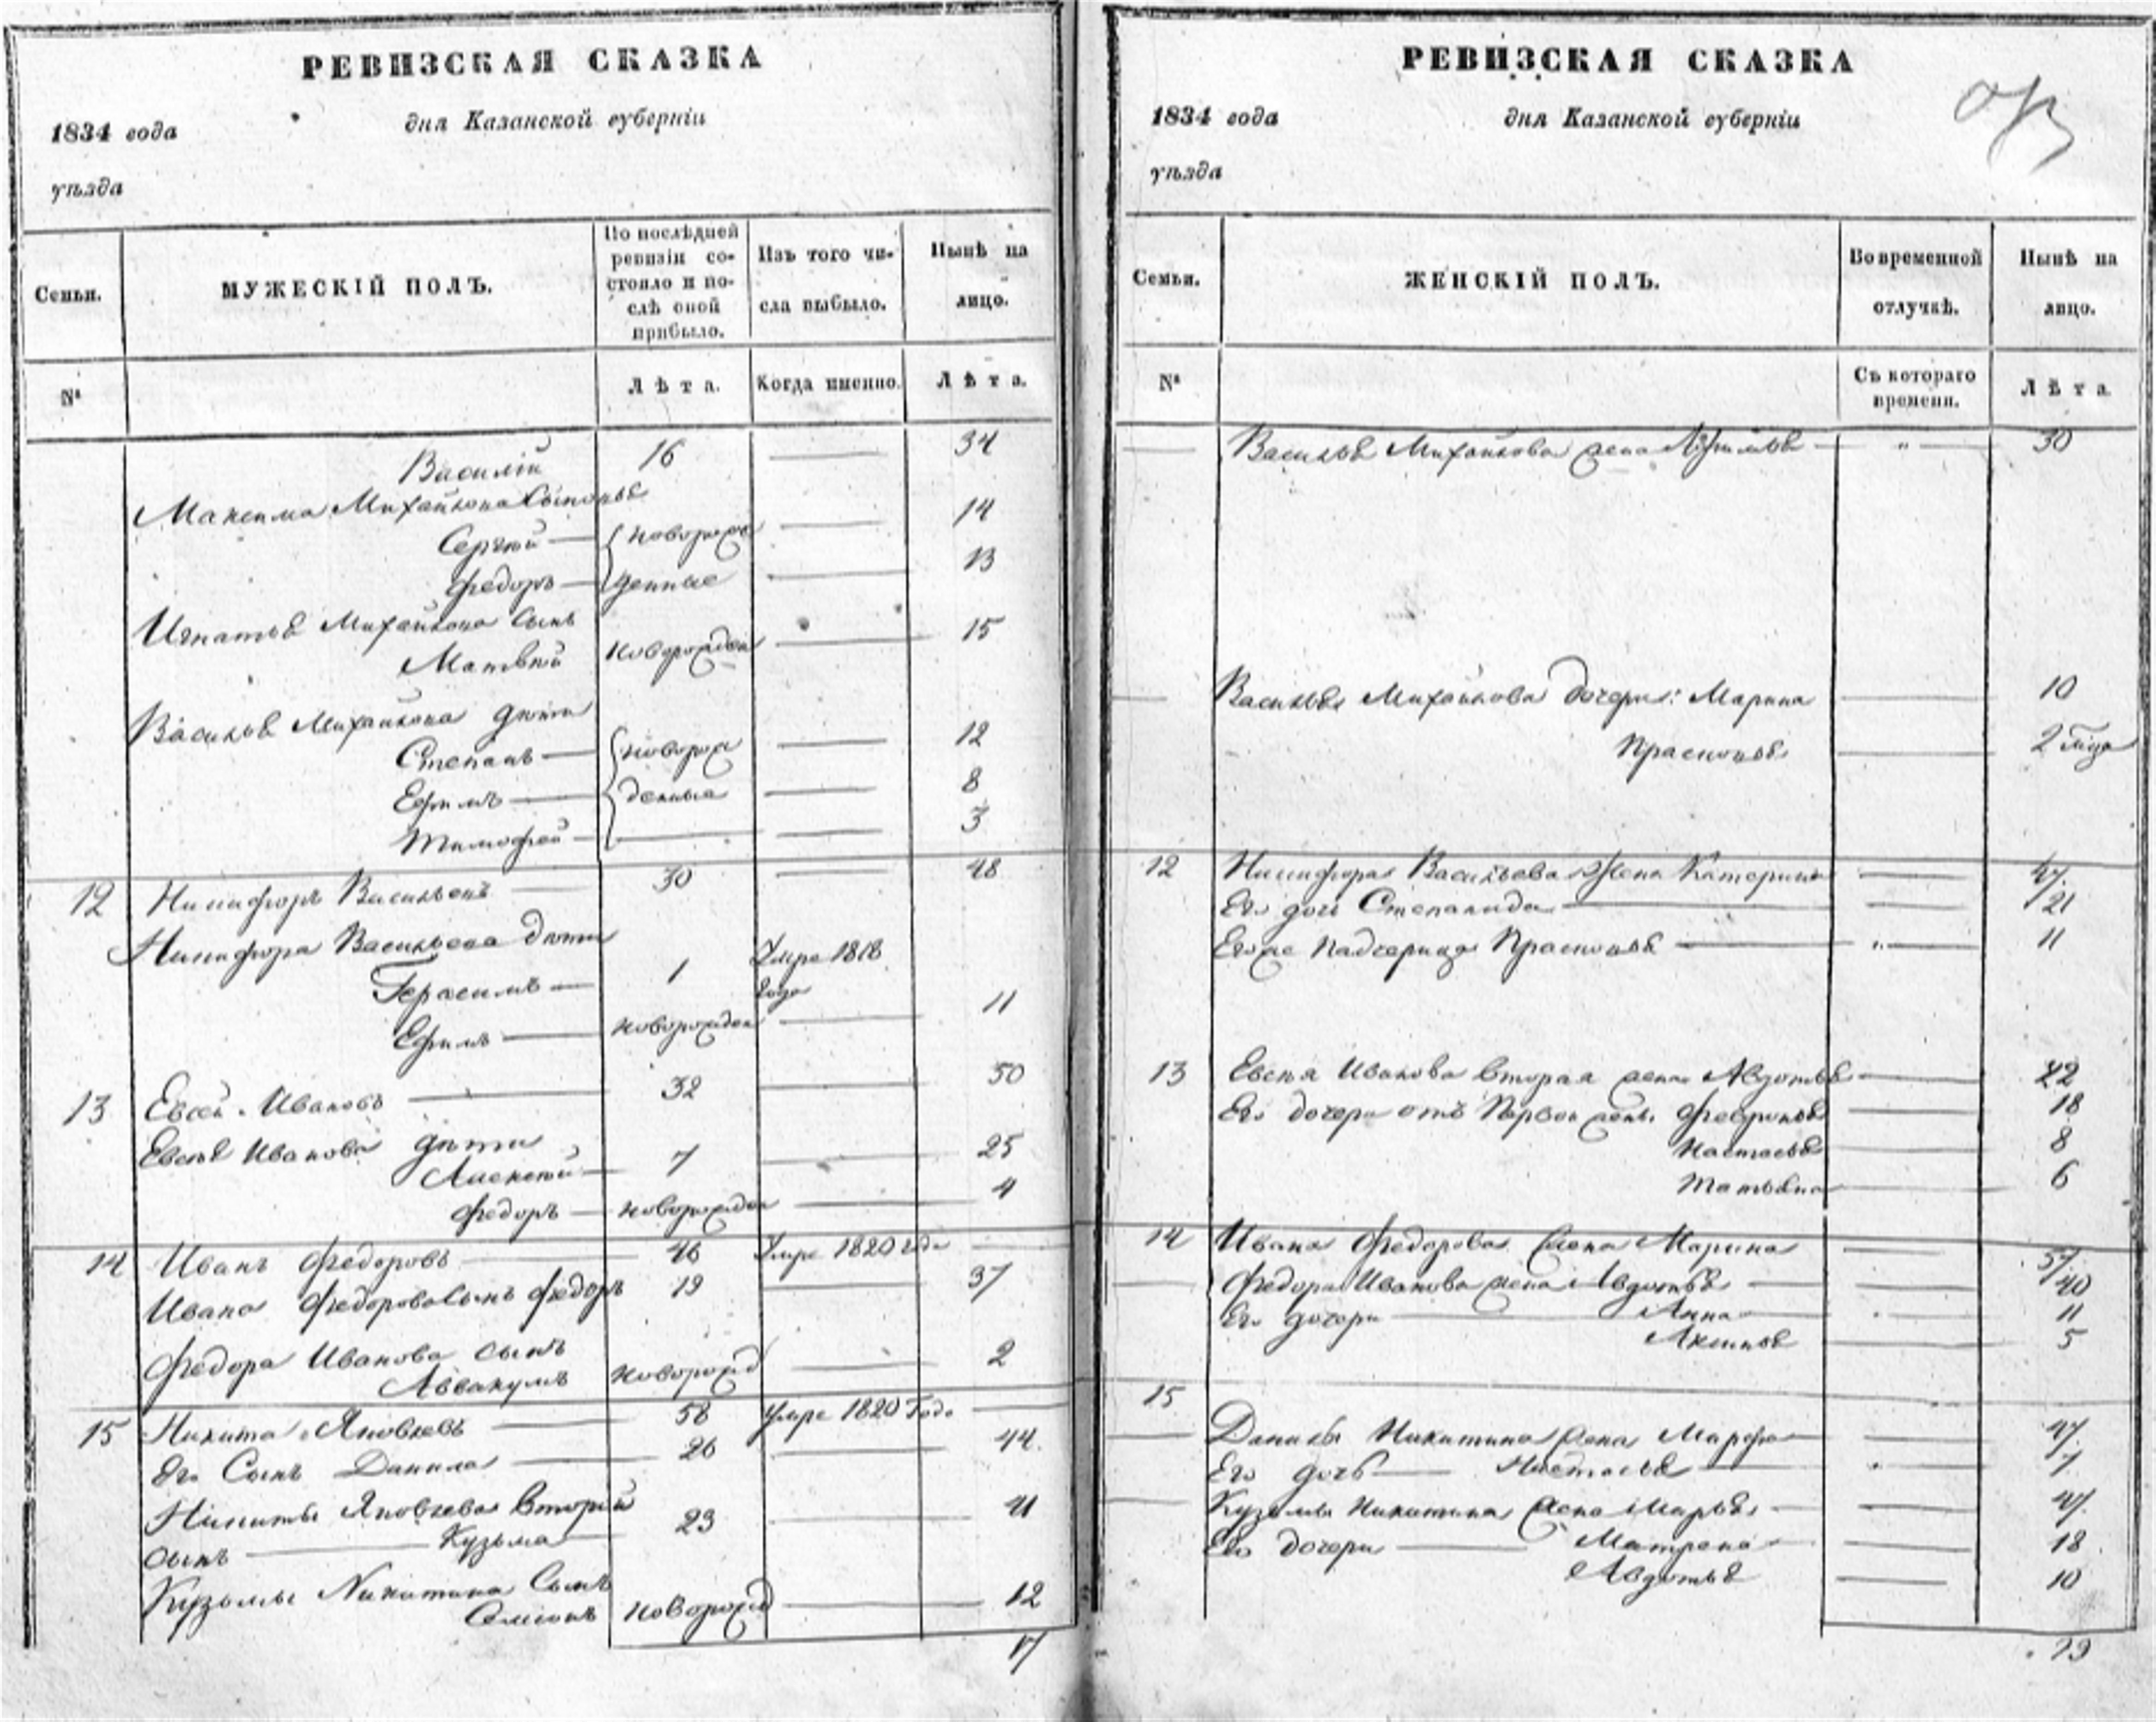 РЕВИЗСКАЯ СКАЗКА
1834 года дня Казанской губерніи
уѣзда
Семьи. МУЖЕСКІЙ ПОЛЪ. По послѣдней ревизіи состояло и послѣ оной прибыло. Изъ того числа выбыло. Нынѣ на лицо.
№ Лѣта. Когда именно. Лѣта.
Василій 16 34
Максима Михайлова Сыновья
Сергѣй — новорож 14
Федоръ — денные 13
Игнатья Михайлова Сынъ
Матвѣй новорожден 15
Василья Михайлова дѣти
Степанъ — новорож 12
Ефимъ — денные 8
Тимофей — 3
12 Никифоръ Васильевъ 30 48
Никифора Васильева дѣти
Герасимъ — 1 Умре 1818 года
Ефимъ — новорожден 11
13 Евсей Ивановъ 32 50
Евсея Иванова дѣти
Алексѣй — 7 25
Федоръ — новорожден 4
14 Иванъ Федоровъ 46 Умре 1820 года
Ивана Федорова Сынъ Федоръ 19 37
Федора Иванова сынъ
Аввакумъ новорожд 2
15 Никита Яковлевъ 58 Умре 1820 Года
Его Сынъ Данила 26 44
Никиты Яковлева Второй
сынъ — Кузьма 23 41
Кузьмы Никитина Сынъ
Семіонъ новорожд 12
17
РЕВИЗСКАЯ СКАЗКА
1834 года дня Казанской губерніи
уѣзда
Семьи. ЖЕНСКІЙ ПОЛЪ. Во временной отлучкѣ. Нынѣ на лицо.
№ Съ котораго времени. Лѣта.
Василья Михайлова жена 30
Василья Михайлова дочери: Марина 10
Прасковья 2
12 Никифора Васильева Жена Катерина 47
Его дочь Степанида 21
Его же Падчерица Прасковья 11
13 Евсея Иванова вторая жена Авдотья 42
Его дочери отъ Первой жены Февронья 18
Настасья 8
Татьяна 6
14 Ивана Федорова жена Марина 57
Федора Иванова жена Авдотья 40
Его дочери Анна 11
Аксинья 5
15
Данилы Никитина жена Марфа 47
Его дочь Настасья 7
Кузьмы Никитина жена Марья 47
Его дочери Матрена 18
Авдотья 10